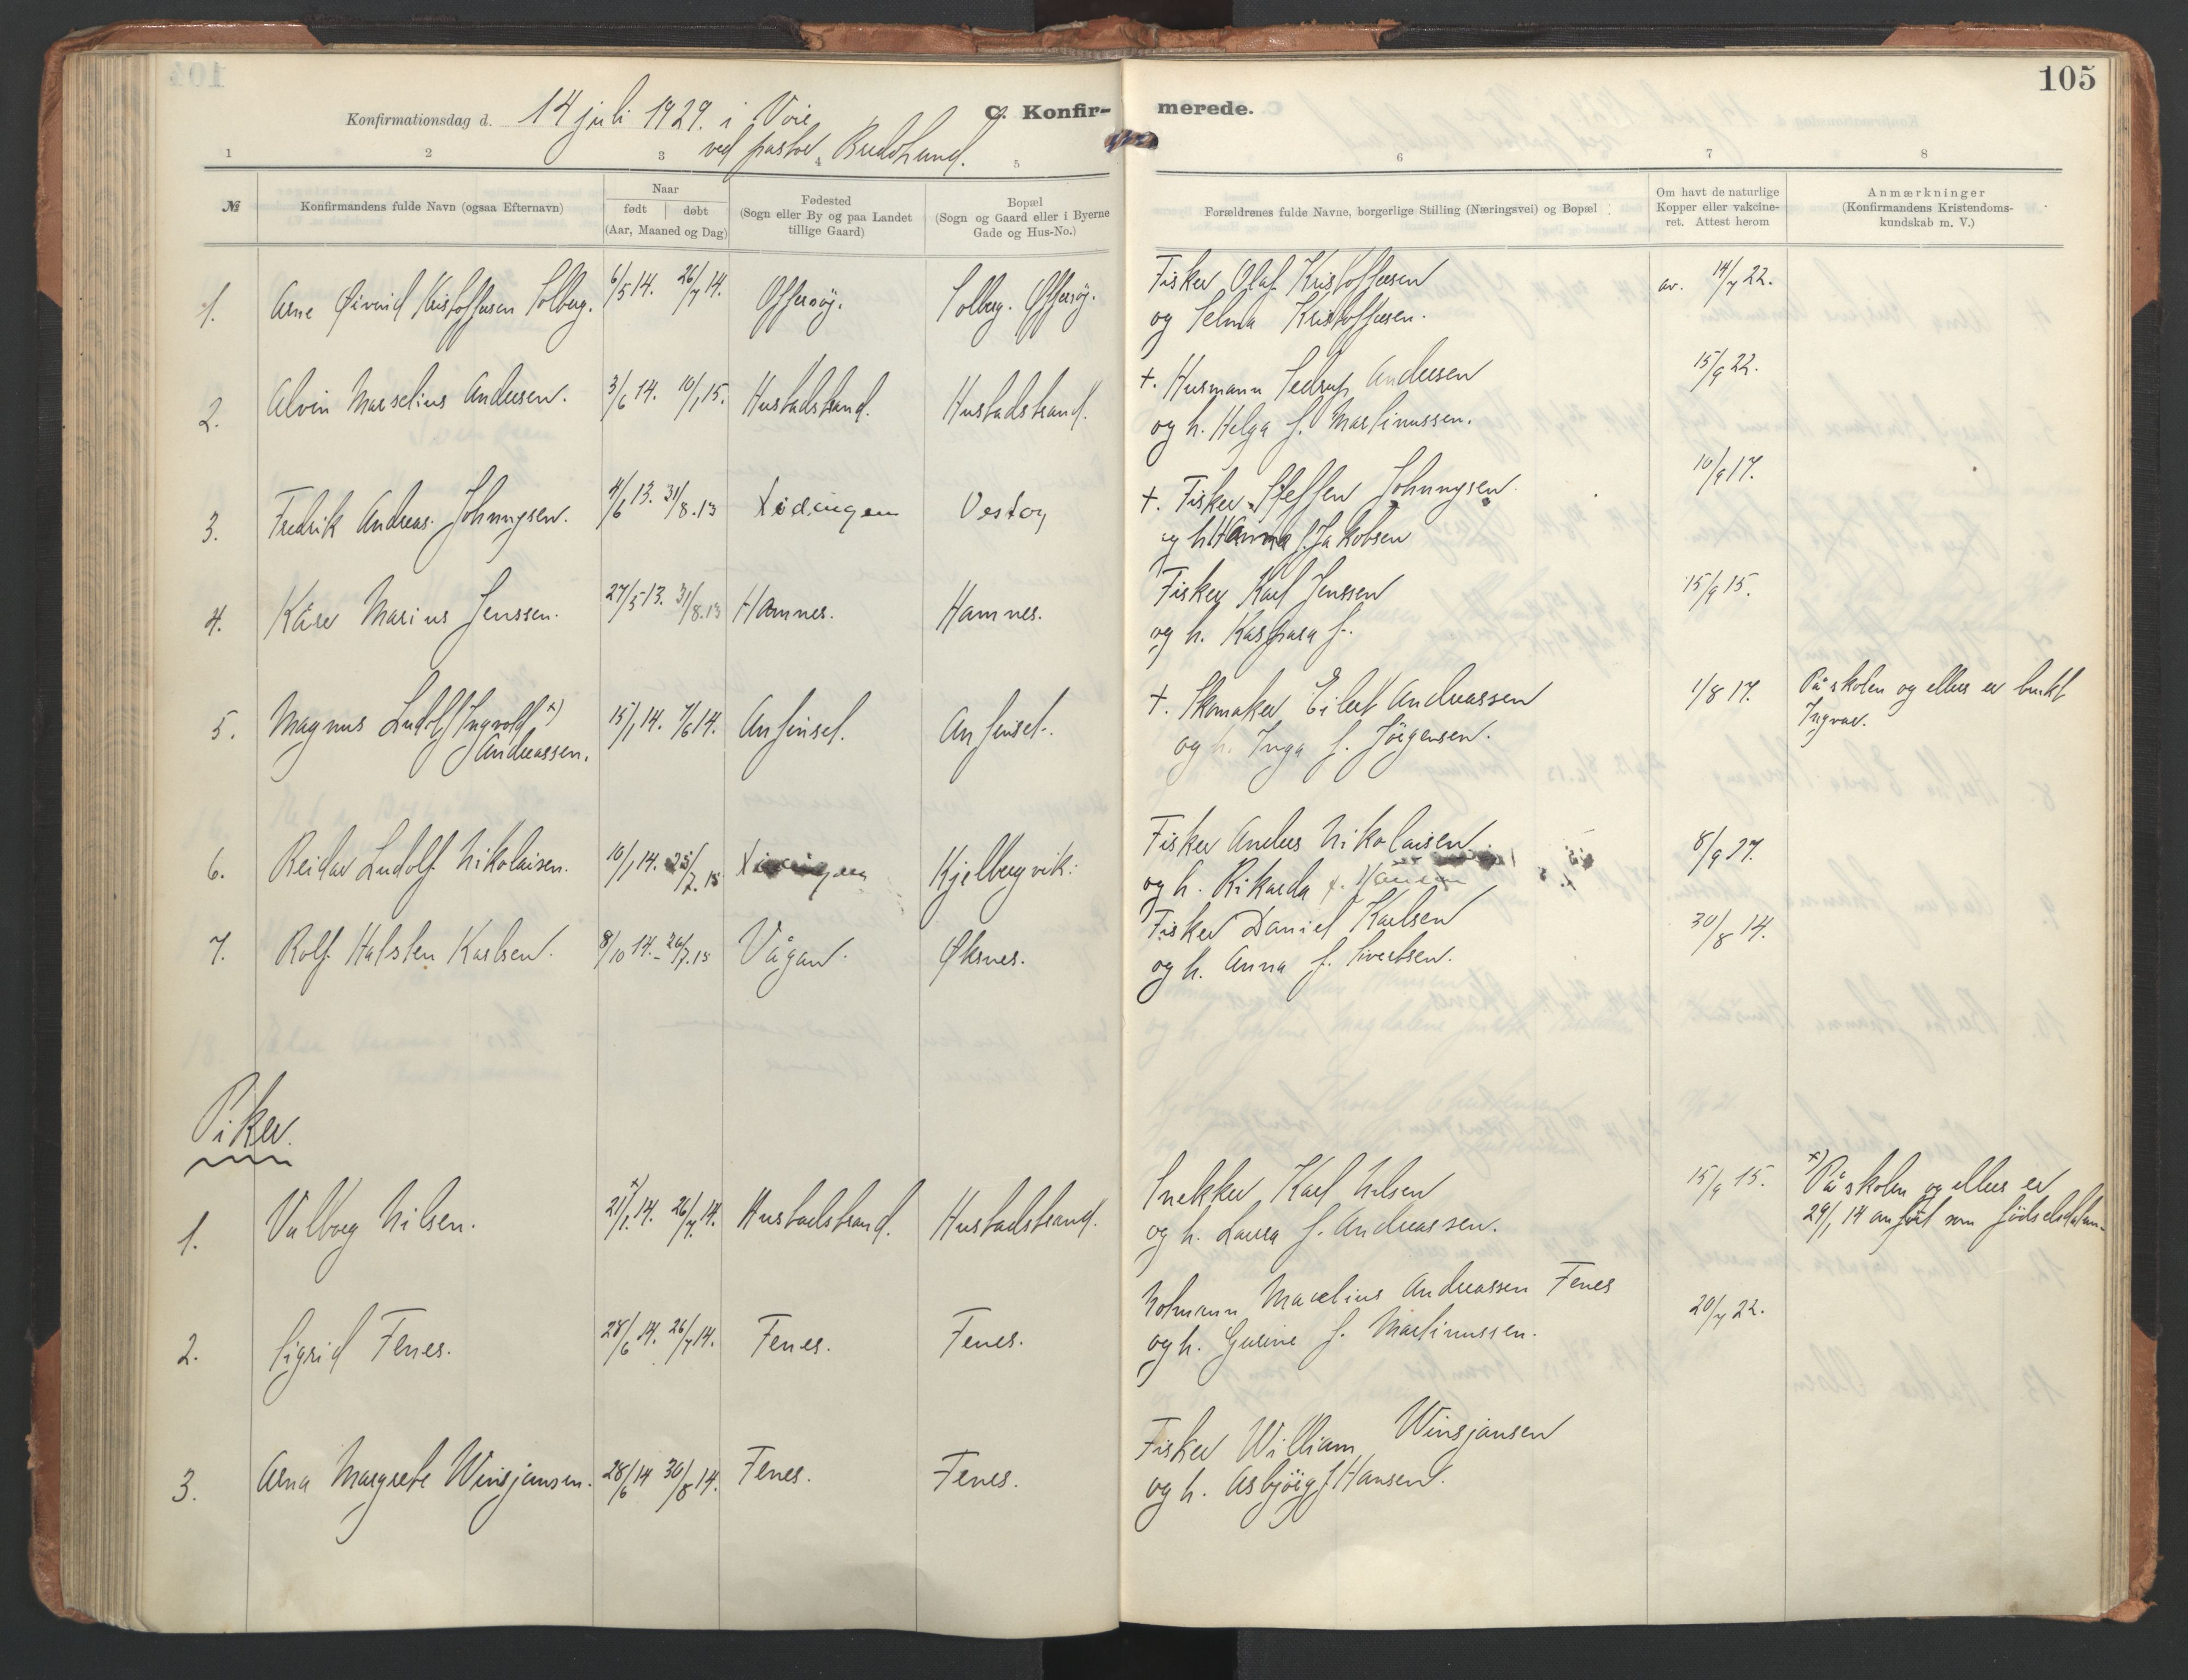 105
Konfirmationsdag d. 14 juli 1929. i Voie
ved pastor
C. Konfir- merede.
1 2 3 4 5 6 7 8
№
Konfirmandens fulde Navn (ogsaa Efternavn)
Naar
født | døbt
(Aar, Maaned og Dag)
Fødested
(Sogn eller By og paa Landet
tillige Gaard)
Bopæl
(Sogn og Gaard eller i Byerne
Gade og Hus-No.)
Forældrenes fulde Navne, borgerlige Stilling (Næringsvei) og Bopæl
Om havt de naturlige
Kopper eller vakcine-
ret. Attest herom
Anmærkninger
(Konfirmandens Kristendoms-
kundskab m. V.)
1. Arne Øivind Kristoffersen Solberg. 6/5 14. 26/7 14. Offersøy. Solberg. Offersøy. Fisker Olaf Kristoffersen av. 14/7 22.
og Selma Kristoffersen.
2. Alvin Marselius Andersen. 3/6 14. 10/1 15. Hustadstrand. Hustadstrand. +. Husmann Sedrup Andersen 15/9 22.
og h. Helga f. Martinussen.
3. Fredrik Andreas Johnnysen. 4/6 13. 31/8.13 Lødingen Vestoy +. Fisker Steffen Johnnysen. 10/9 17.
og h. Hanna f. Jakobsen
4. Kåre Marius Jenssen. 27/5 13. 31/8.13 Hamnes. Hamnes. Fisker Karl Jenssen 15/9 15.
og h. Kaspara f.
5. Magnus Ludolf Ingvold x) 15/1 14. 7/6 14. Anfinset. Anfinset. +. Skomaker Eilert Andreassen 1/8 17. På skolen og ellers er brukt
Andreassen. og h. Inga f. Jörgensen. Ingvar.
6. Reidar Ludolf Nikolaisen. 10/1 14. 25/7.15 Kjelbergvik. Fisker Anders Nikolaisen. 8/9 27.
og h. Rikarda f. Hansen
7. Rolf Halsten Karlsen. 8/10 14. - 26/7.15 Vågan. Øksnes. Fisker Daniel Karlsen 30/8 14.
og h. Anna f. Sivertsen.
Piker.
1. Valborg Nilsen. 21/1. x) 14. 26/7 14. Hustadstrand. Hustadstrand. Snekker Karl Nilsen 15/9 15. x) På skolen og ellers er
og h. Laura f. Andreassen. 29/1 14 anført som fødselsdatum.
2. Sigrid Fenes. 28/6 14. 26/7 14. Fenes. Fenes. Notmann Marelius Andreassen Fenes 20/7 22.
og h. Gurine f. Martinussen.
3. Arna Margrete Winsjansen. 28/6 14 30/8 14. Fenes. Fenes. Fisker William Winsjansen
og h. Asbjörg f Hansen.